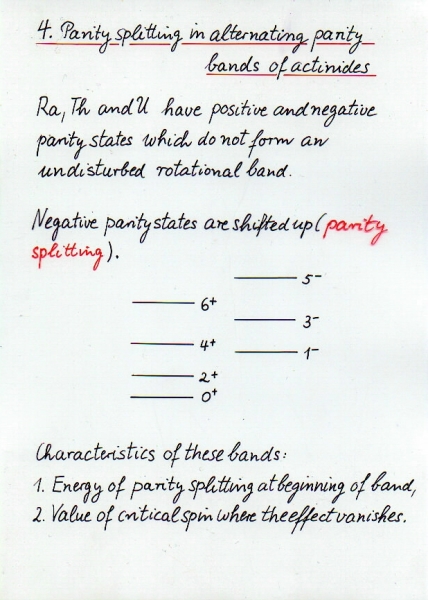 4. Parity splitting in alternating parity
bands of actinides
Ra, Th and U have positive and negative
parity states which do not form an
undisturbed rotational band.
Negative parity states are shifted up (parity
splitting).
5⁻
6⁺
3⁻
4⁺
1⁻
2⁺
0⁺
Characteristics of these bands:
1. Energy of parity splitting at beginning of band,
2. Value of critical spin where the effect vanishes.